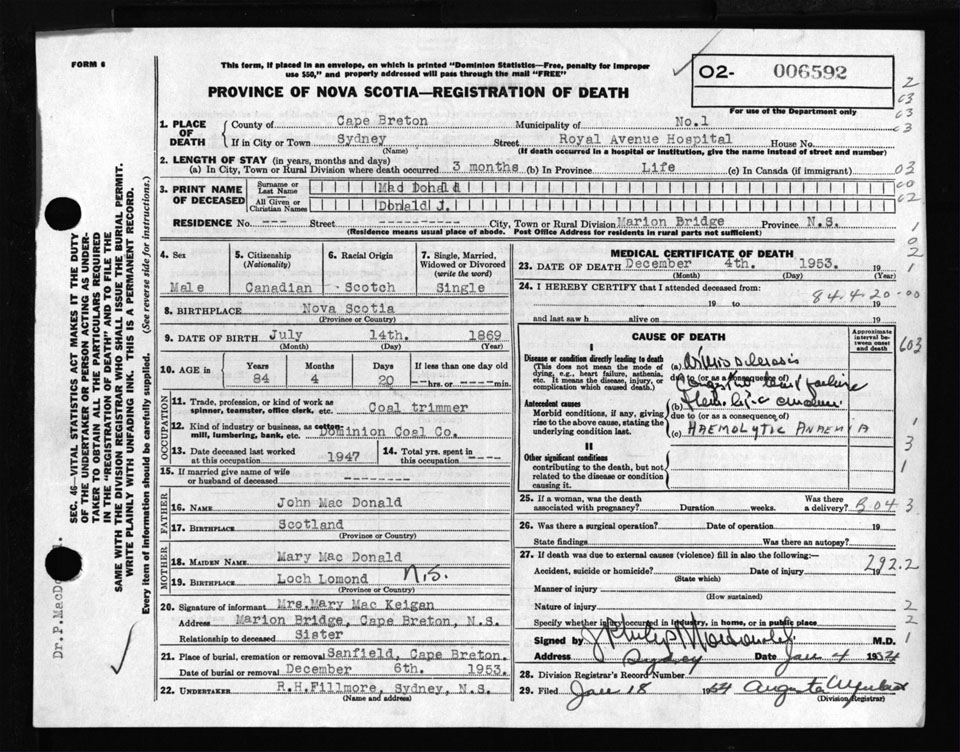 FORM 6
This form, if placed in an envelope, on which is printed "Dominion Statistics—Free, penalty for improper
use $50," and properly addressed will pass through the mail "FREE"
PROVINCE OF NOVA SCOTIA—REGISTRATION OF DEATH
O2- 006592
For use of the Department only
2
03
03
03
1. PLACE OF DEATH
County of Cape Breton Municipality of No.1
If in City or Town Sydney Street Royal Avenue Hospital House No.
(Name) (If death occurred in a hospital or institution, give the name instead of street and number)
2. LENGTH OF STAY (in years, months and days)
(a) In City, Town or Rural Division where death occurred 3 months (b) In Province Life (c) In Canada (if immigrant)
03
00
02
3. PRINT NAME OF DECEASED
Surname or Last Name Mac Donald
All Given or Christian Names Donald J.
RESIDENCE No. ---- Street ----- City, Town or Rural Division Marion Bridge Province N.S.
(Residence means usual place of abode. Post Office Address for residents in rural parts not sufficient)
1
0
2
1
4. Sex
Male
5. Citizenship
(Nationality)
Canadian
6. Racial Origin
Scotch
7. Single, Married,
Widowed or Divorced
(write the word)
Single
8. BIRTHPLACE Nova Scotia
(Province or Country)
9. DATE OF BIRTH July 14th. 1869
(Month) (Day) (Year)
10. AGE in
Years Months Days If less than one day old
84 4 20 ---hrs. or -----min.
OCCUPATION
11. Trade, profession, or kind of work as
spinner, teamster, office clerk, etc. Coal trimmer
12. Kind of industry or business, as cotton-
mill, lumbering, bank, etc. Dominion Coal Co.
13. Date deceased last worked
at this occupation 1947
14. Total yrs. spent in
this occupation ----
15. If married give name of wife
or husband of deceased --------
FATHER
16. NAME John Mac Donald
17. BIRTHPLACE Scotland
(Province or Country)
MOTHER
18. MAIDEN NAME Mary Mac Donald
19. BIRTHPLACE Loch Lomond N.S.
(Province or Country)
20. Signature of informant Mrs.Mary Mac Keigan
Address Marion Bridge, Cape Breton, N.S.
Relationship to deceased Sister
21. Place of burial, cremation or removal Sanfield, Cape Breton.
Date of burial or removal December 6th. 1953.
22. UNDERTAKER R.H.Fillmore, Sydney, N.S.
MEDICAL CERTIFICATE OF DEATH
23. DATE OF DEATH December 4th. 1953. 19
(Month) (Day)
24. I HEREBY CERTIFY that I attended deceased from:
84.4.20-00
19 to 19
and last saw h alive on 19
CAUSE OF DEATH
Approximate
interval between
onset
and death
603
I
Disease or condition directly leading to death
(This does not mean the mode of
dying, e.g., heart failure, asthenia,
etc. It means the disease, injury, or
complication which caused death.)
(a) Arteriosclerosis
due to (or as a consequence of)
Congestive heart failure
Antecedent causes
Morbid conditions, if any, giving
rise to the above cause, stating the
underlying condition last.
(b)
due to (or as a consequence of)
(c) HAEMOLYTIC ANAEMIA
II
Other significant conditions
contributing to the death, but not
related to the disease or condition
causing it.
1
3
1
25. If a woman, was the death
associated with pregnancy? Duration weeks. Was there
a delivery?
3043
26. Was there a surgical operation? Date of operation 19
State findings Was there an autopsy?
27. If death was due to external causes (violence) fill in also the following:—
Accident, suicide or homicide? Date of injury 19
(State which)
292.2
Manner of injury
(How sustained)
Nature of injury
2
Specify whether injury occurred in industry, in home, or in public place
2
Signed by J Philip Macdonald M.D.
1
Address Sydney Date Jan 4 1954
28. Division Registrar's Record Number
29. Filed Jan 18 1954 Augusta
(Division Registrar)
SEC. 46—VITAL STATISTICS ACT MAKES IT THE DUTY
OF THE UNDERTAKER OR PERSON ACTING AS UNDER-
TAKER TO OBTAIN ALL THE PARTICULARS REQUIRED
IN THE "REGISTRATION OF DEATH" AND TO FILE THE
SAME WITH THE DIVISION REGISTRAR WHO SHALL ISSUE THE BURIAL PERMIT.
WRITE PLAINLY WITH UNFADING INK. THIS IS A PERMANENT RECORD.
Every item of information should be carefully supplied. (See reverse side for instructions.)
Dr.P.MacDo